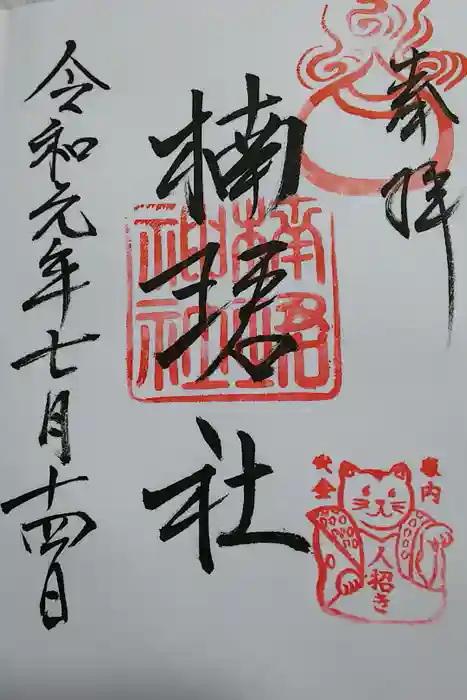 奉拝
楠珺社
令和元年七月十四日
楠珺
神社
家内
安全
人招き